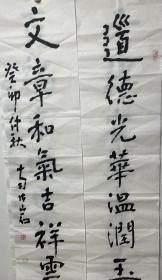 道德光華溫潤玉
文章和氣吉祥雲
癸卯仲秋